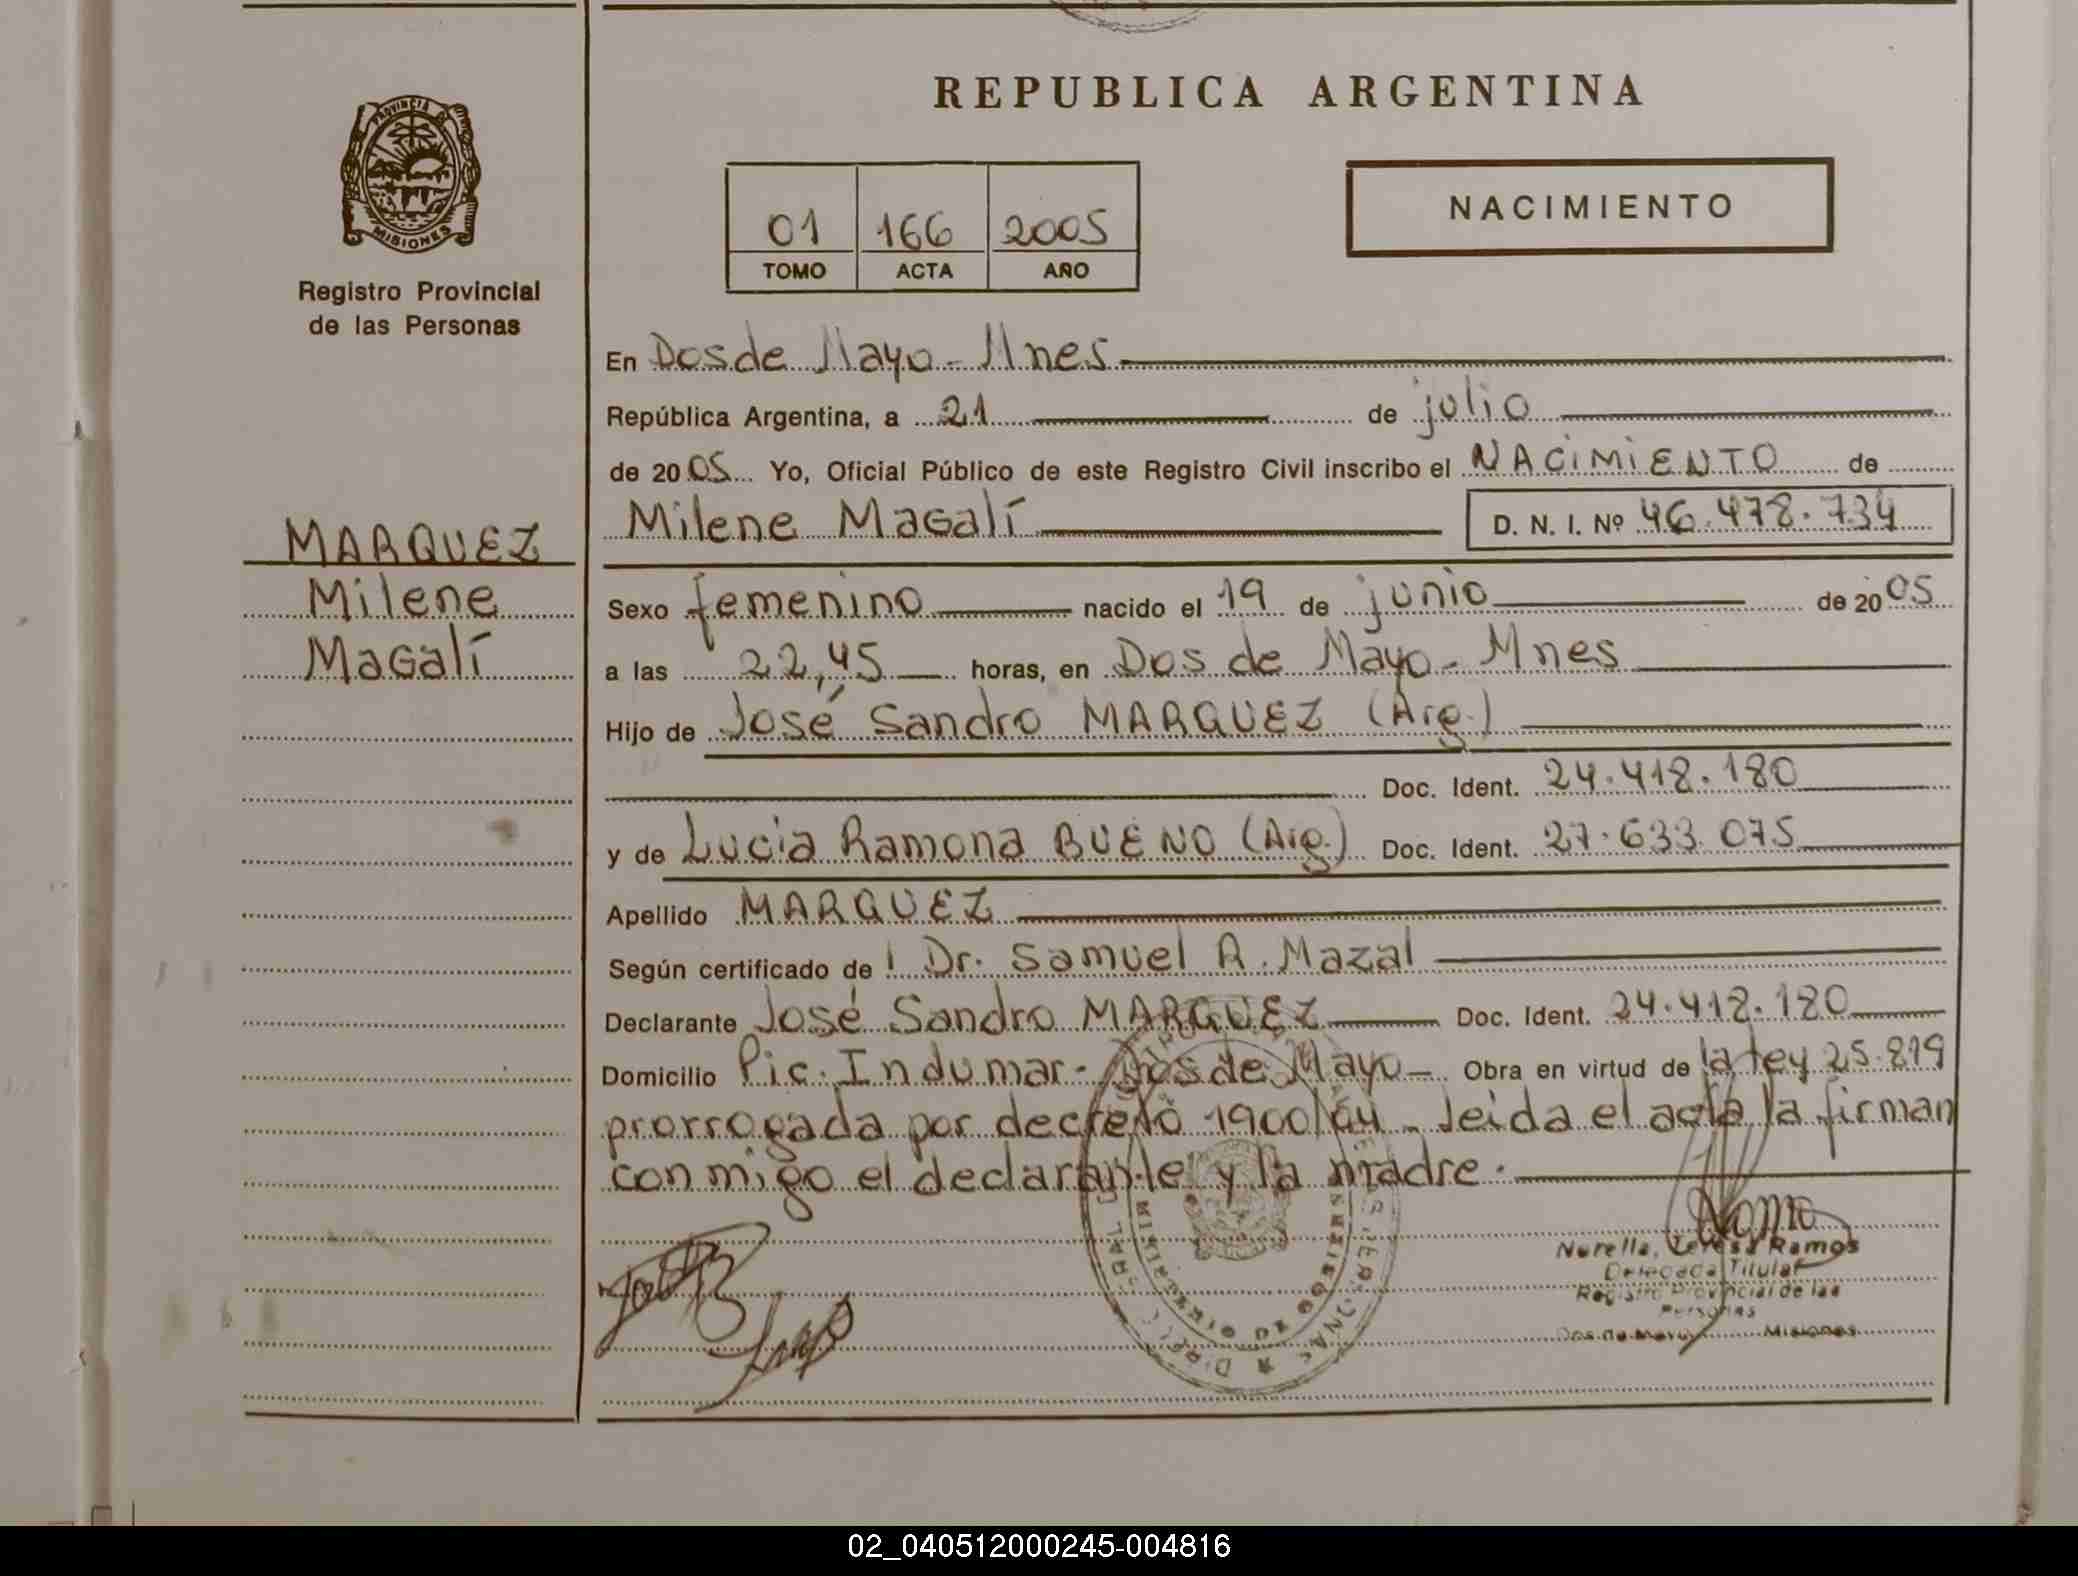 REPUBLICA ARGENTINA
PROVINCIA DE
MISIONES
Registro Provincial
de las Personas
01 166 2005
TOMO ACTA AÑO
NACIMIENTO
En Dos de Mayo - Mnes
República Argentina, a 21 de julio
de 2005 Yo, Oficial Público de este Registro Civil inscribo el NACIMIENTO de
Milene Magalí D. N. I. Nº 46.478.734
MARQUEZ
Milene
Magalí
Sexo femenino nacido el 19 de junio de 2005
a las 22,45 horas, en Dos de Mayo - Mnes
Hijo de José Sandro MARQUEZ (Arg.)
Doc. Ident. 24.418.180
y de Lucia Ramona BUENO (Arg.) Doc. Ident. 27.633.075
Apellido MARQUEZ
Según certificado de Dr. Samuel A. Mazal
Declarante José Sandro MARQUEZ Doc. Ident. 24.418.180
Domicilio Pic. Indumar - Dos de Mayo Obra en virtud de la ley 25.819
prorrogada por decreto 1900/04 - leida el acta la firman
conmigo el declarante y la madre.
Norella, Teresa Ramos
Delegada Titular
Registro Provincial de las
Personas
Dos de Mayo Misiones
02_040512000245-004816